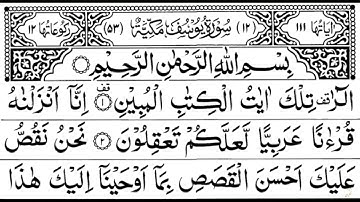 اٰیَاتُهَا ١١١ (١٢) سُوْرَةُ يُوْسُفَ مَكِّيَّةٌ (٥٣) رُكُوْعَاتُهَا ١٢
بِسْمِ اللّٰهِ الرَّحْمٰنِ الرَّحِيْمِ
الٓرٰ تِلْكَ اٰيٰتُ الْكِتٰبِ الْمُبِيْنِ ۝١ اِنَّآ اَنْزَلْنٰهُ
قُرْءٰنًا عَرَبِيًّا لَّعَلَّكُمْ تَعْقِلُوْنَ ۝٢ نَحْنُ نَقُصُّ
عَلَيْكَ اَحْسَنَ الْقَصَصِ بِمَآ اَوْحَيْنَآ اِلَيْكَ هٰذَا